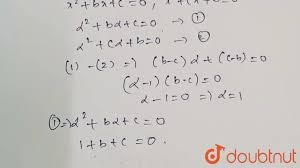 x²+bx+c=0, x²+cx+b=0
α²+bα+c=0 → ①
α²+cα+b=0 → ②
(1)-(2) ⇒ (b-c)α+(c-b)=0
(α-1)(b-c)=0
α-1=0 ⇒ α=1
①⇒ α²+bα+c=0
1+b+c=0.
doubtnut